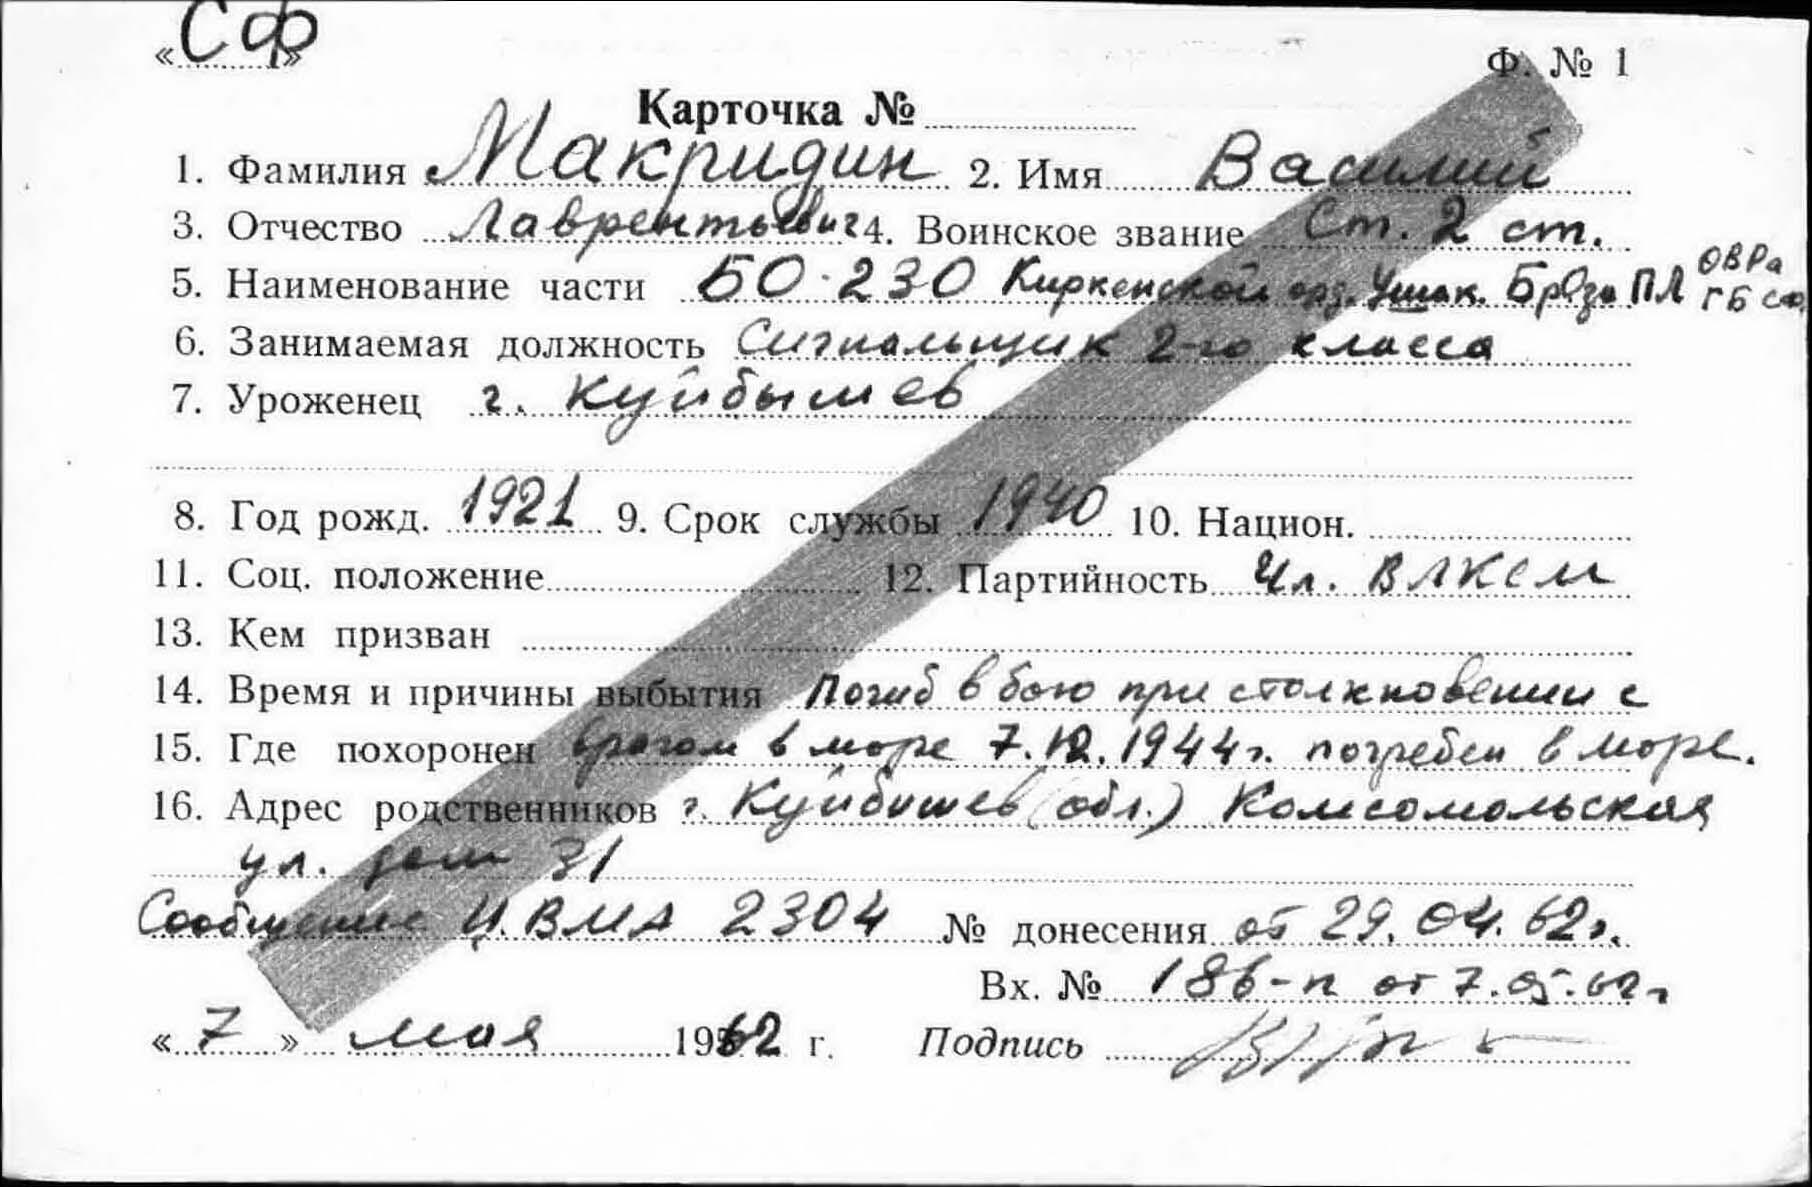 «СФ»
Ф. № 1
Карточка №
1. Фамилия Макридин 2. Имя Василий
3. Отчество Лаврентьевич 4. Воинское звание Ст. 2 ст.
5. Наименование части БО-230 Киркенской орд. Ушак. БрОза ПЛ ОВРа ГБ СФ
6. Занимаемая должность Сигнальщик 2-го класса
7. Уроженец г. Куйбышев
8. Год рожд. 1921 9. Срок службы 1940 10. Национ.
11. Соц. положение 12. Партийность Чл. ВЛКСМ
13. Кем призван
14. Время и причины выбытия Погиб в бою при столкновении с
15. Где похоронен врагом в море 7.12.1944г. погребен в море.
16. Адрес родственников г. Куйбышев (обл.) Комсомольская
ул. дом 31
Сообщение ЦВМА 2304 № донесения от 29.04.62г.
Вх. № 186-п от 7.05.62г
«7» мая 1962 г. Подпись